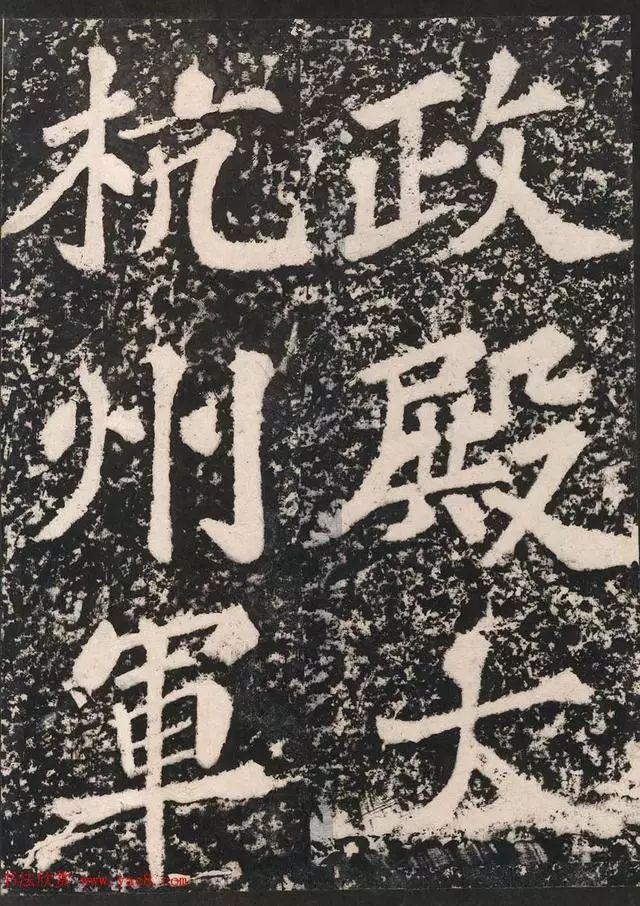 政殿大
杭州軍
书法欣赏 www.yac8.com